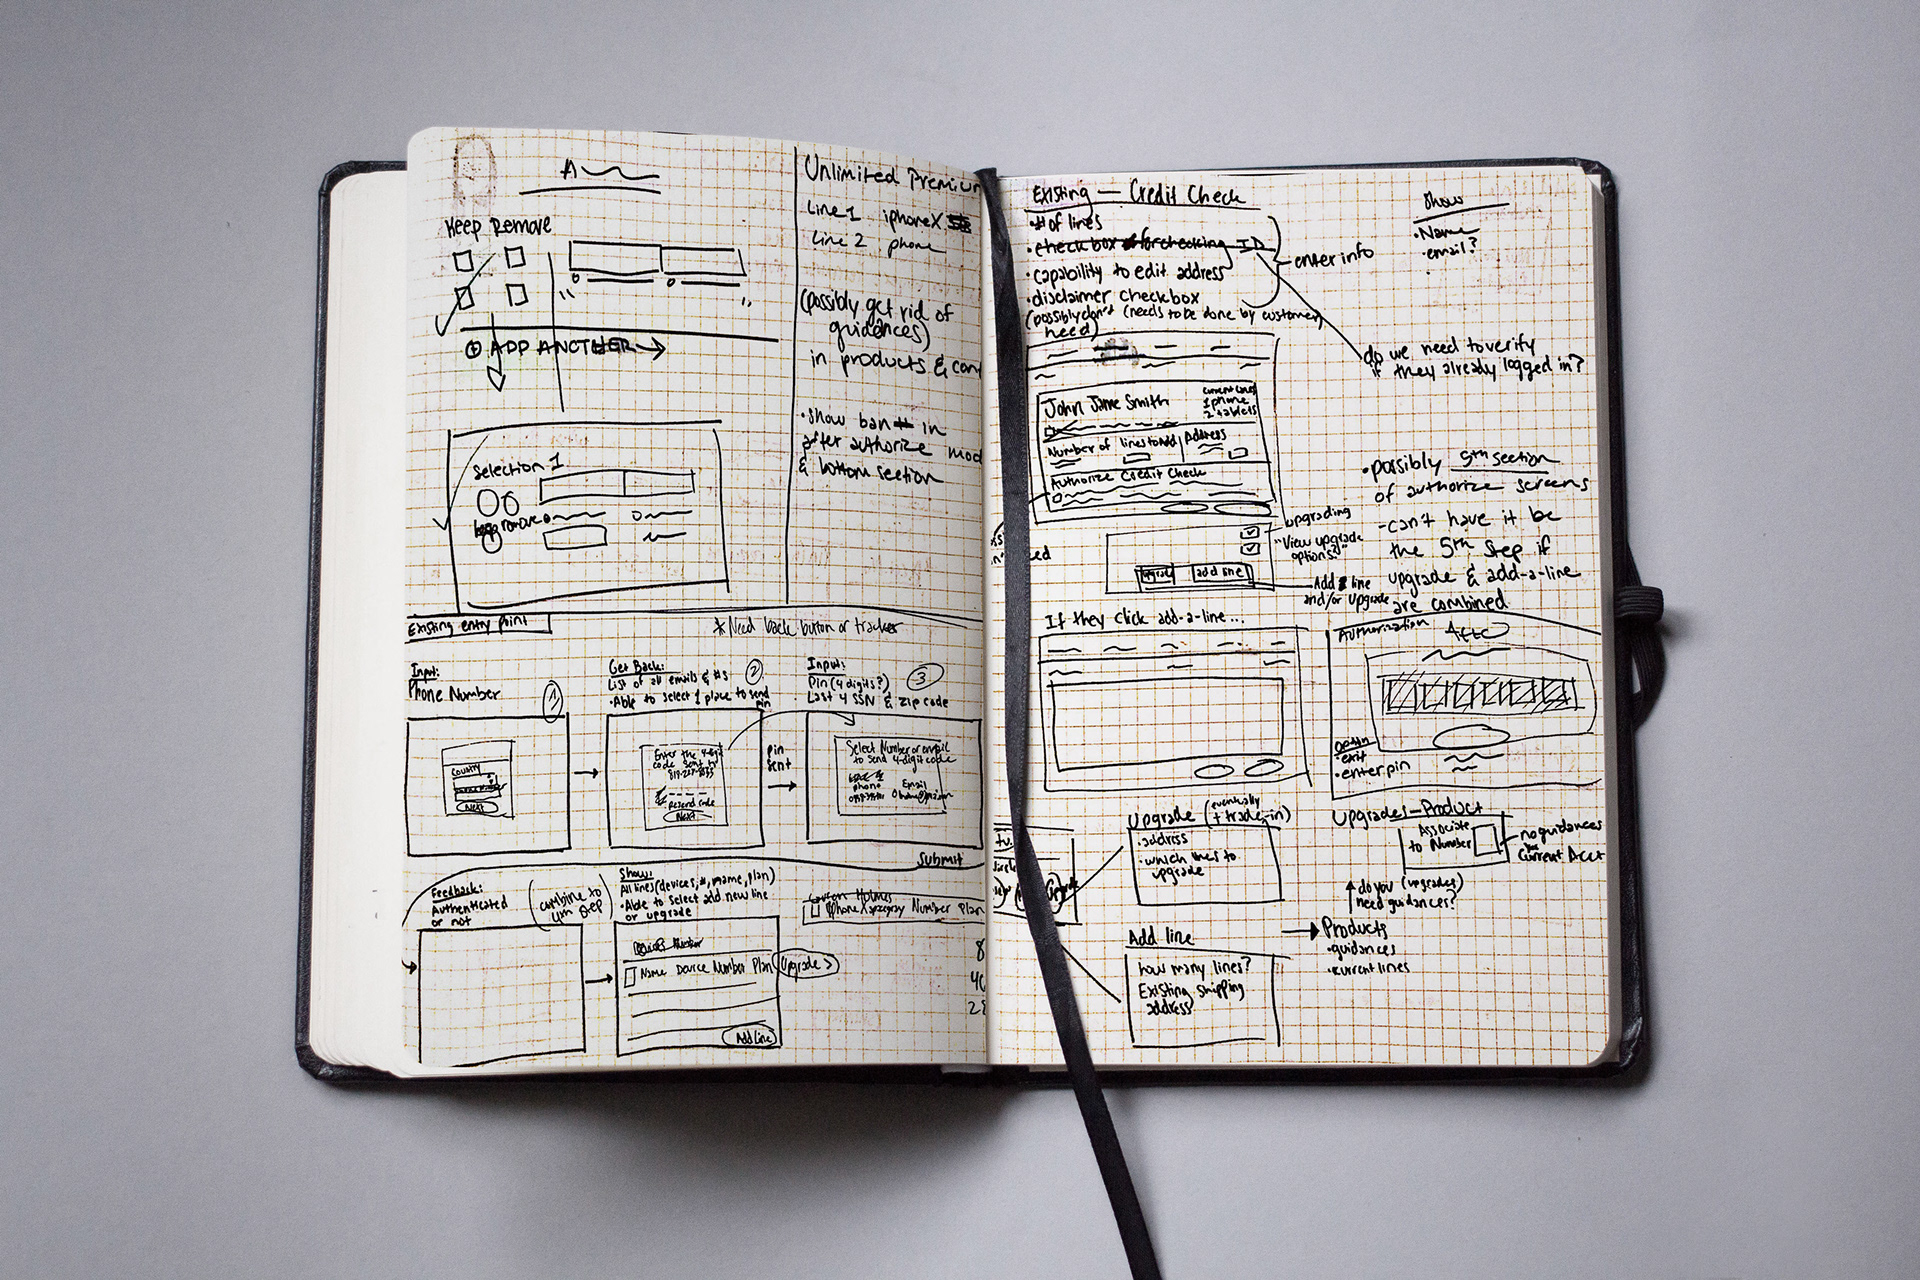 Keep Remove
ADD ANOTHER
Selection 1
remove
Unlimited Premium
Line 1 iphone X
Line 2 phone
(possibly get rid of
guidances)
in products &
• Show ban # in
after authorize mod
& bottom section
Existing entry point
* Need back button or tracker
Input:
Phone Number
1
Country
Next
Get Back:
List of all emails & #s
• Able to select 1 place to send
pin
2
Enter the 4-digit
code sent to
Resend code
Next
pin
sent
Input:
Pin (4 digits?)
Last 4 SSN & zip code
3
Select Number or email
to send 4-digit code
phone
Email
Submit
Feedback:
Authenticated
or not
(combine to
4th step)
Show:
All lines (devices, #, name, plan)
• Able to select add new line
or upgrade
Name Device Number Plan
Upgrade >
Add Line
iPhone X spacegray Number Plan
Existing — Credit Check
• # of lines
• check box for checking ID
• capability to edit address
• disclaimer checkbox
(possibly don't (needs to be done by customer)
need)
enter info
do we need to verify
if they already logged in?
Show
• Name
• email?
John Jame Smith
current lines
1 phone
2 tablets
Number of lines to add
Address
Authorize Credit Check
upgrading
"View upgrade
options?"
upgrade
add line
Add line
and/or upgrade
• possibly 5th section
of authorize screens
- can't have it be
the 5th step if
upgrade & add-a-line
are combined
If they click add-a-line...
Authorization
• exit
• enter pin
Upgrade (eventually
+ trade-in)
• address
• which lines to
upgrade
Add line
how many lines?
Existing shipping
address
Upgrades — Product
Associate
to Number
no guidances
Current Acct
do you (upgrades)
need guidances?
Products
• guidances
• current lines